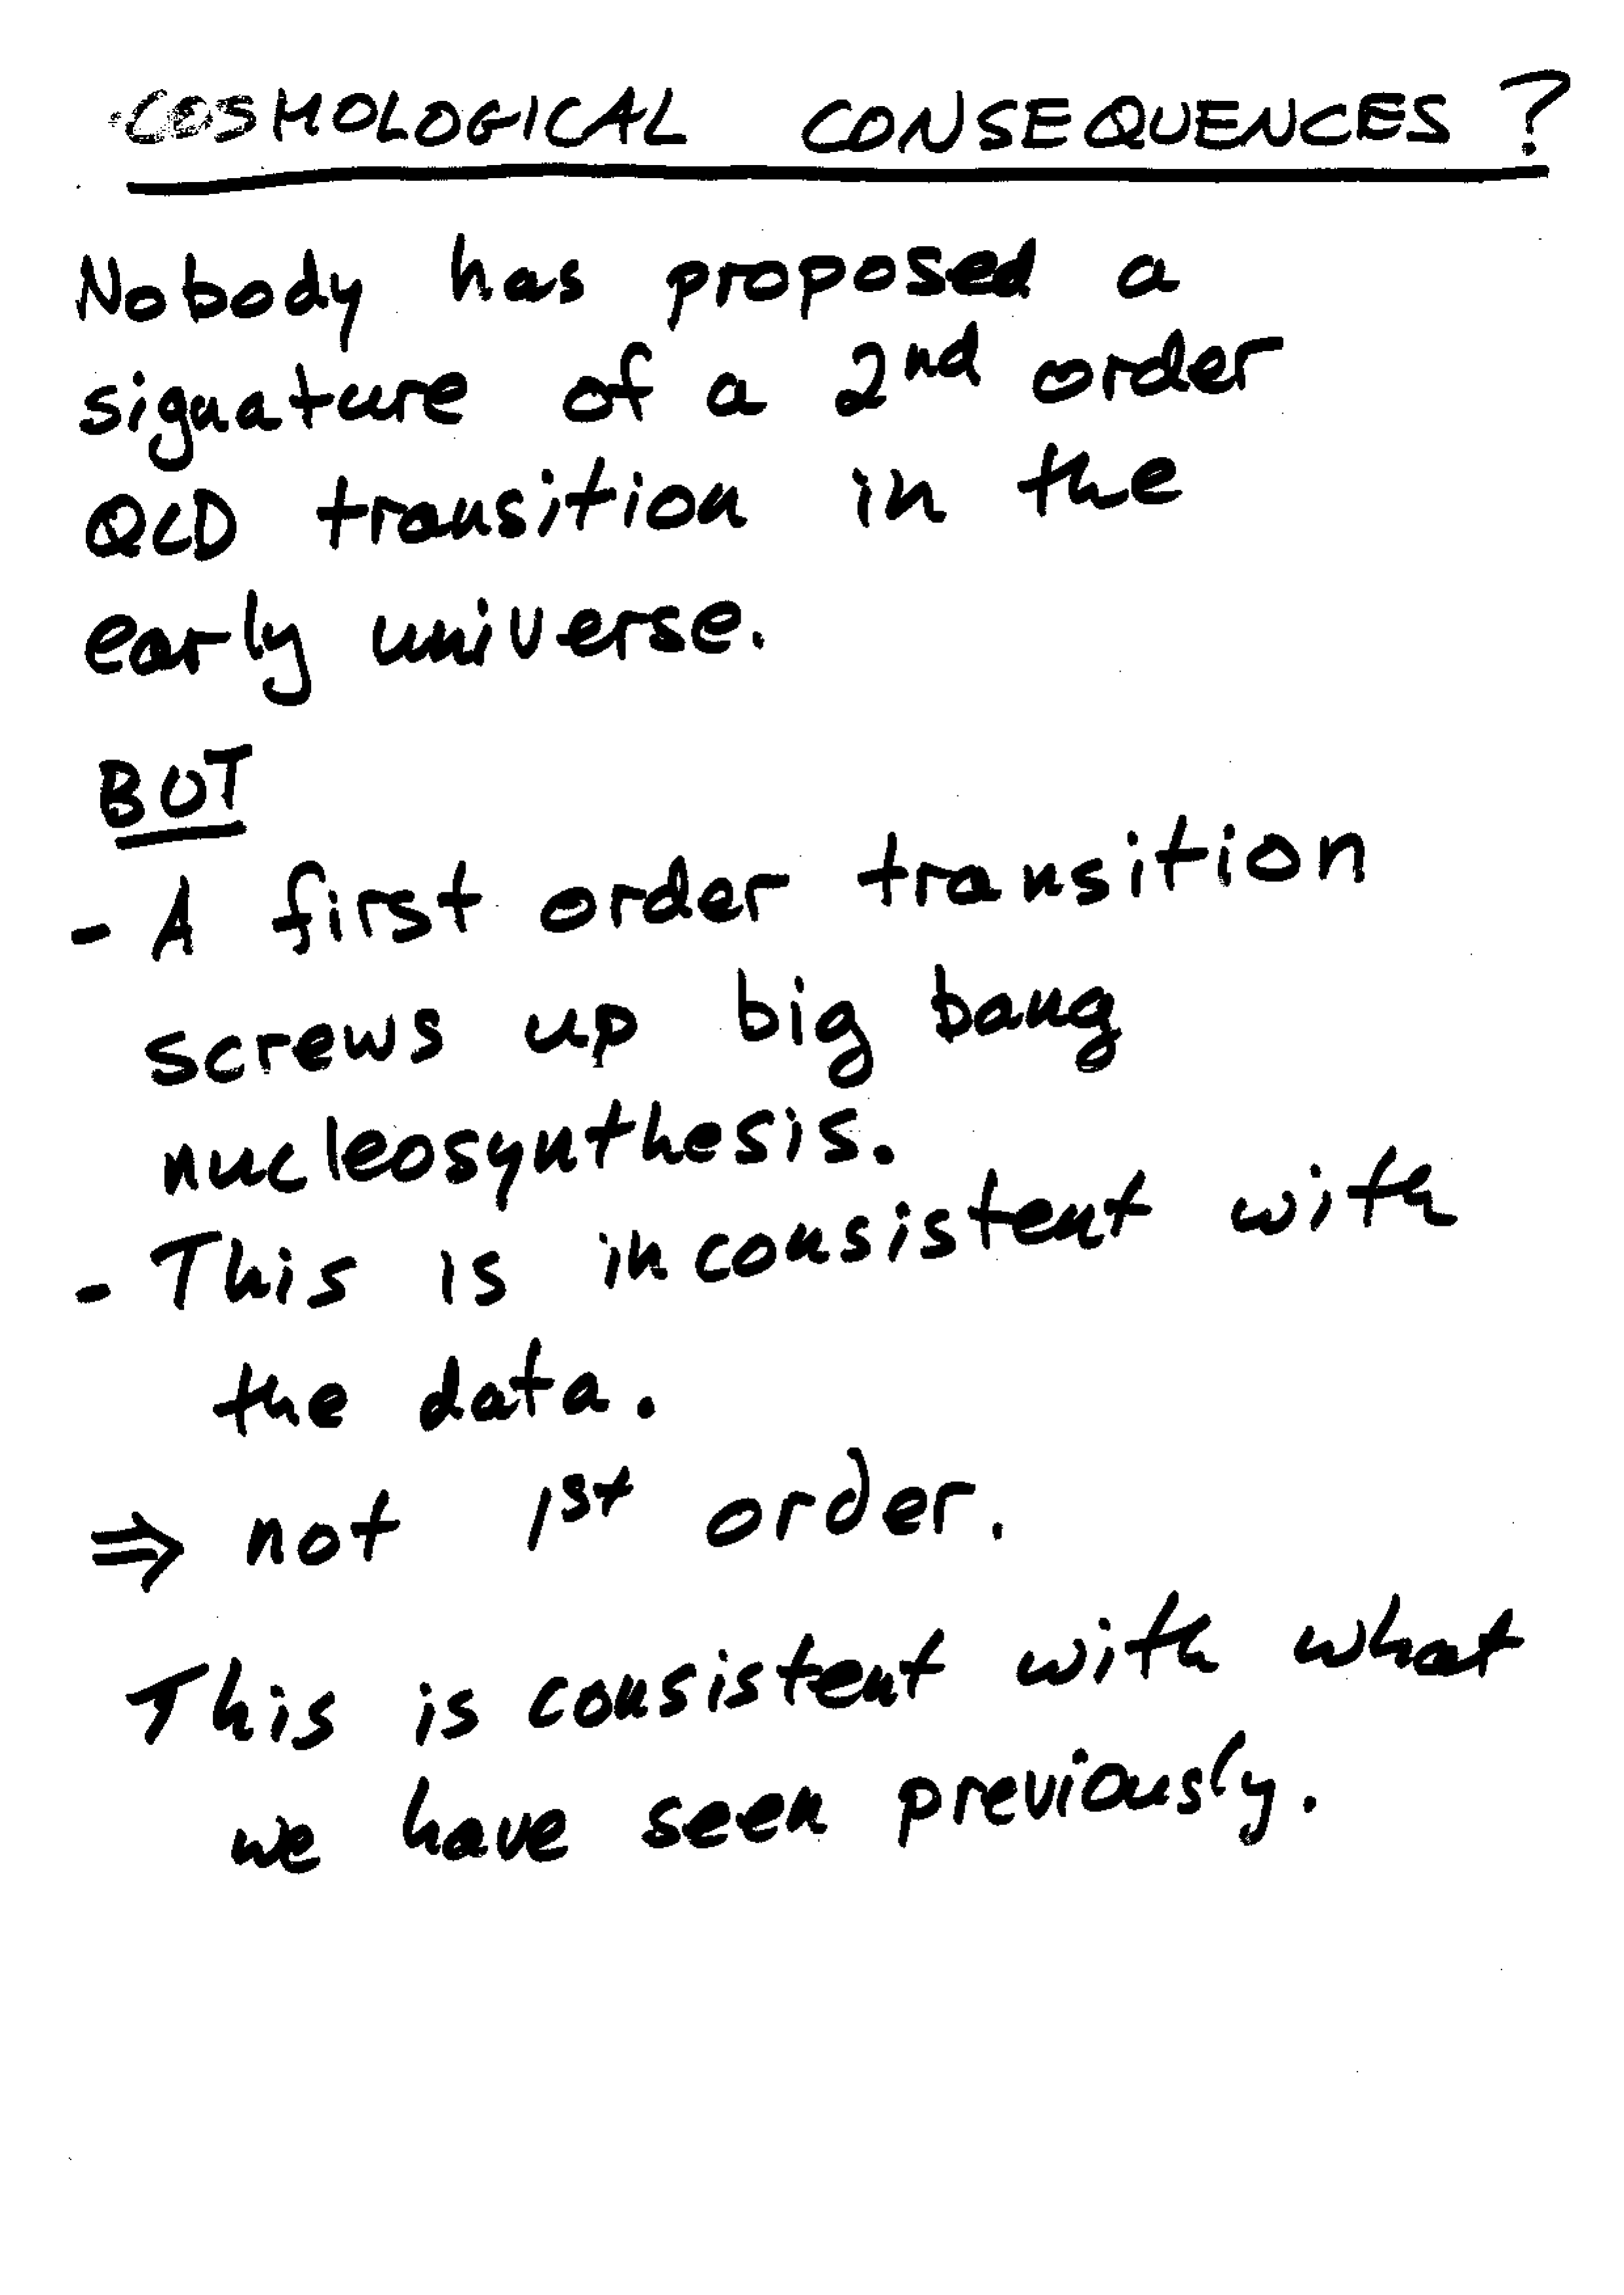 COSMOLOGICAL CONSEQUENCES?
Nobody has proposed a
signature of a 2nd order
QCD transition in the
early universe.
BUT
- A first order transition
screws up big bang
nucleosynthesis.
- This is inconsistent with
the data.
⇒ not 1st order.
This is consistent with what
we have seen previously.